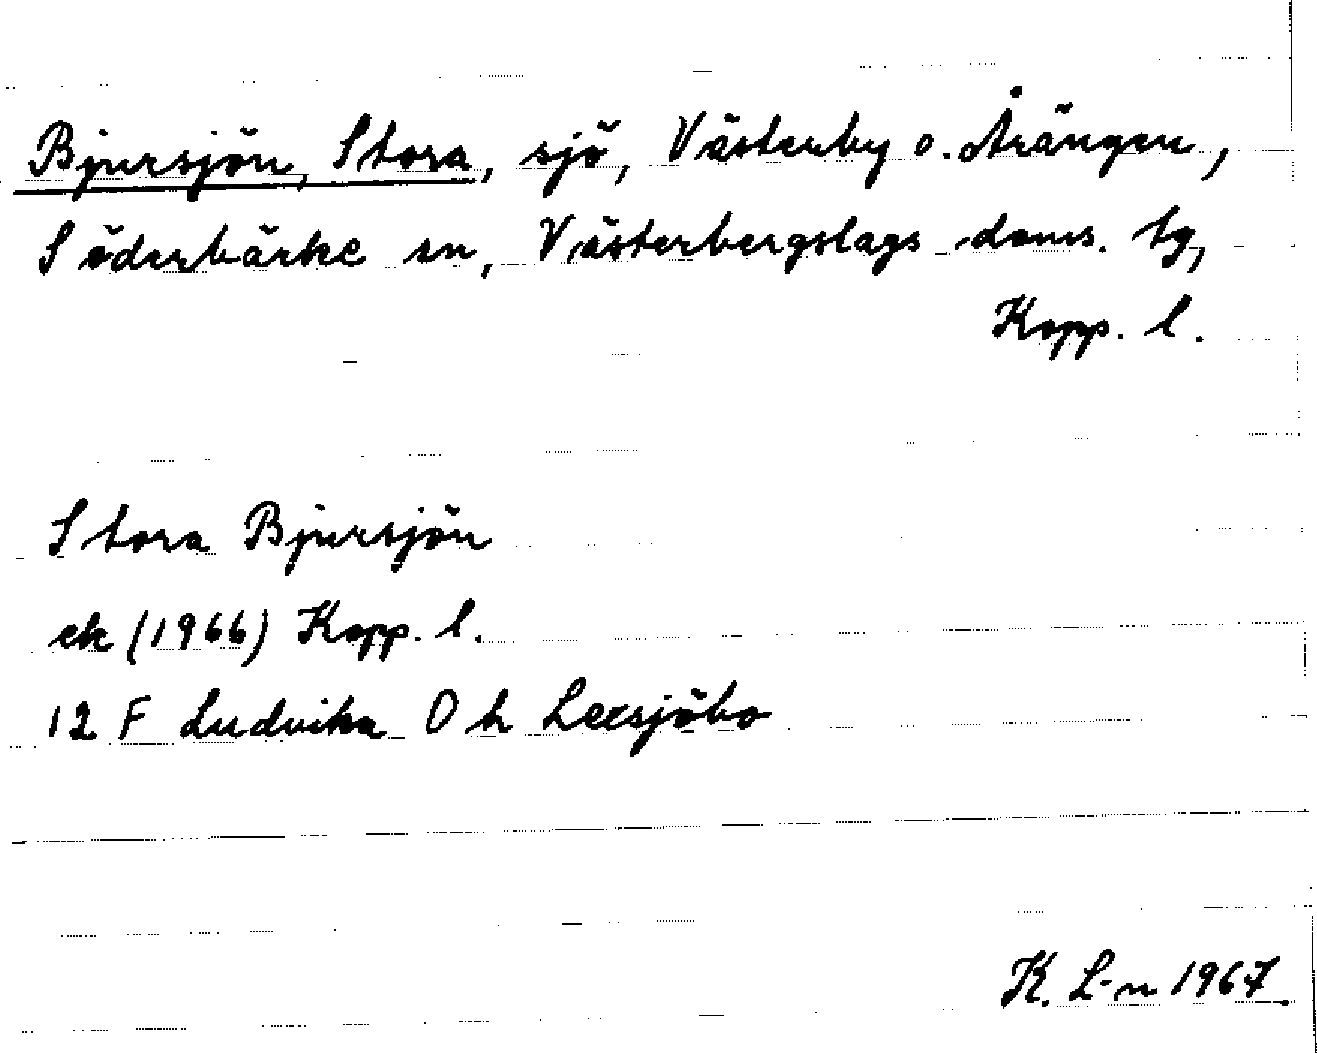 Bjursjön, Stora, sjö, Västerby o. Årängen,
Söderbärke sn, Västerbergslags doms. tg,
Kopp. l.
Stora Bjursjön
ek (1966) Kopp. l.
12 F Ludvika 0 h Lersjöbo
K. L-n 1967.